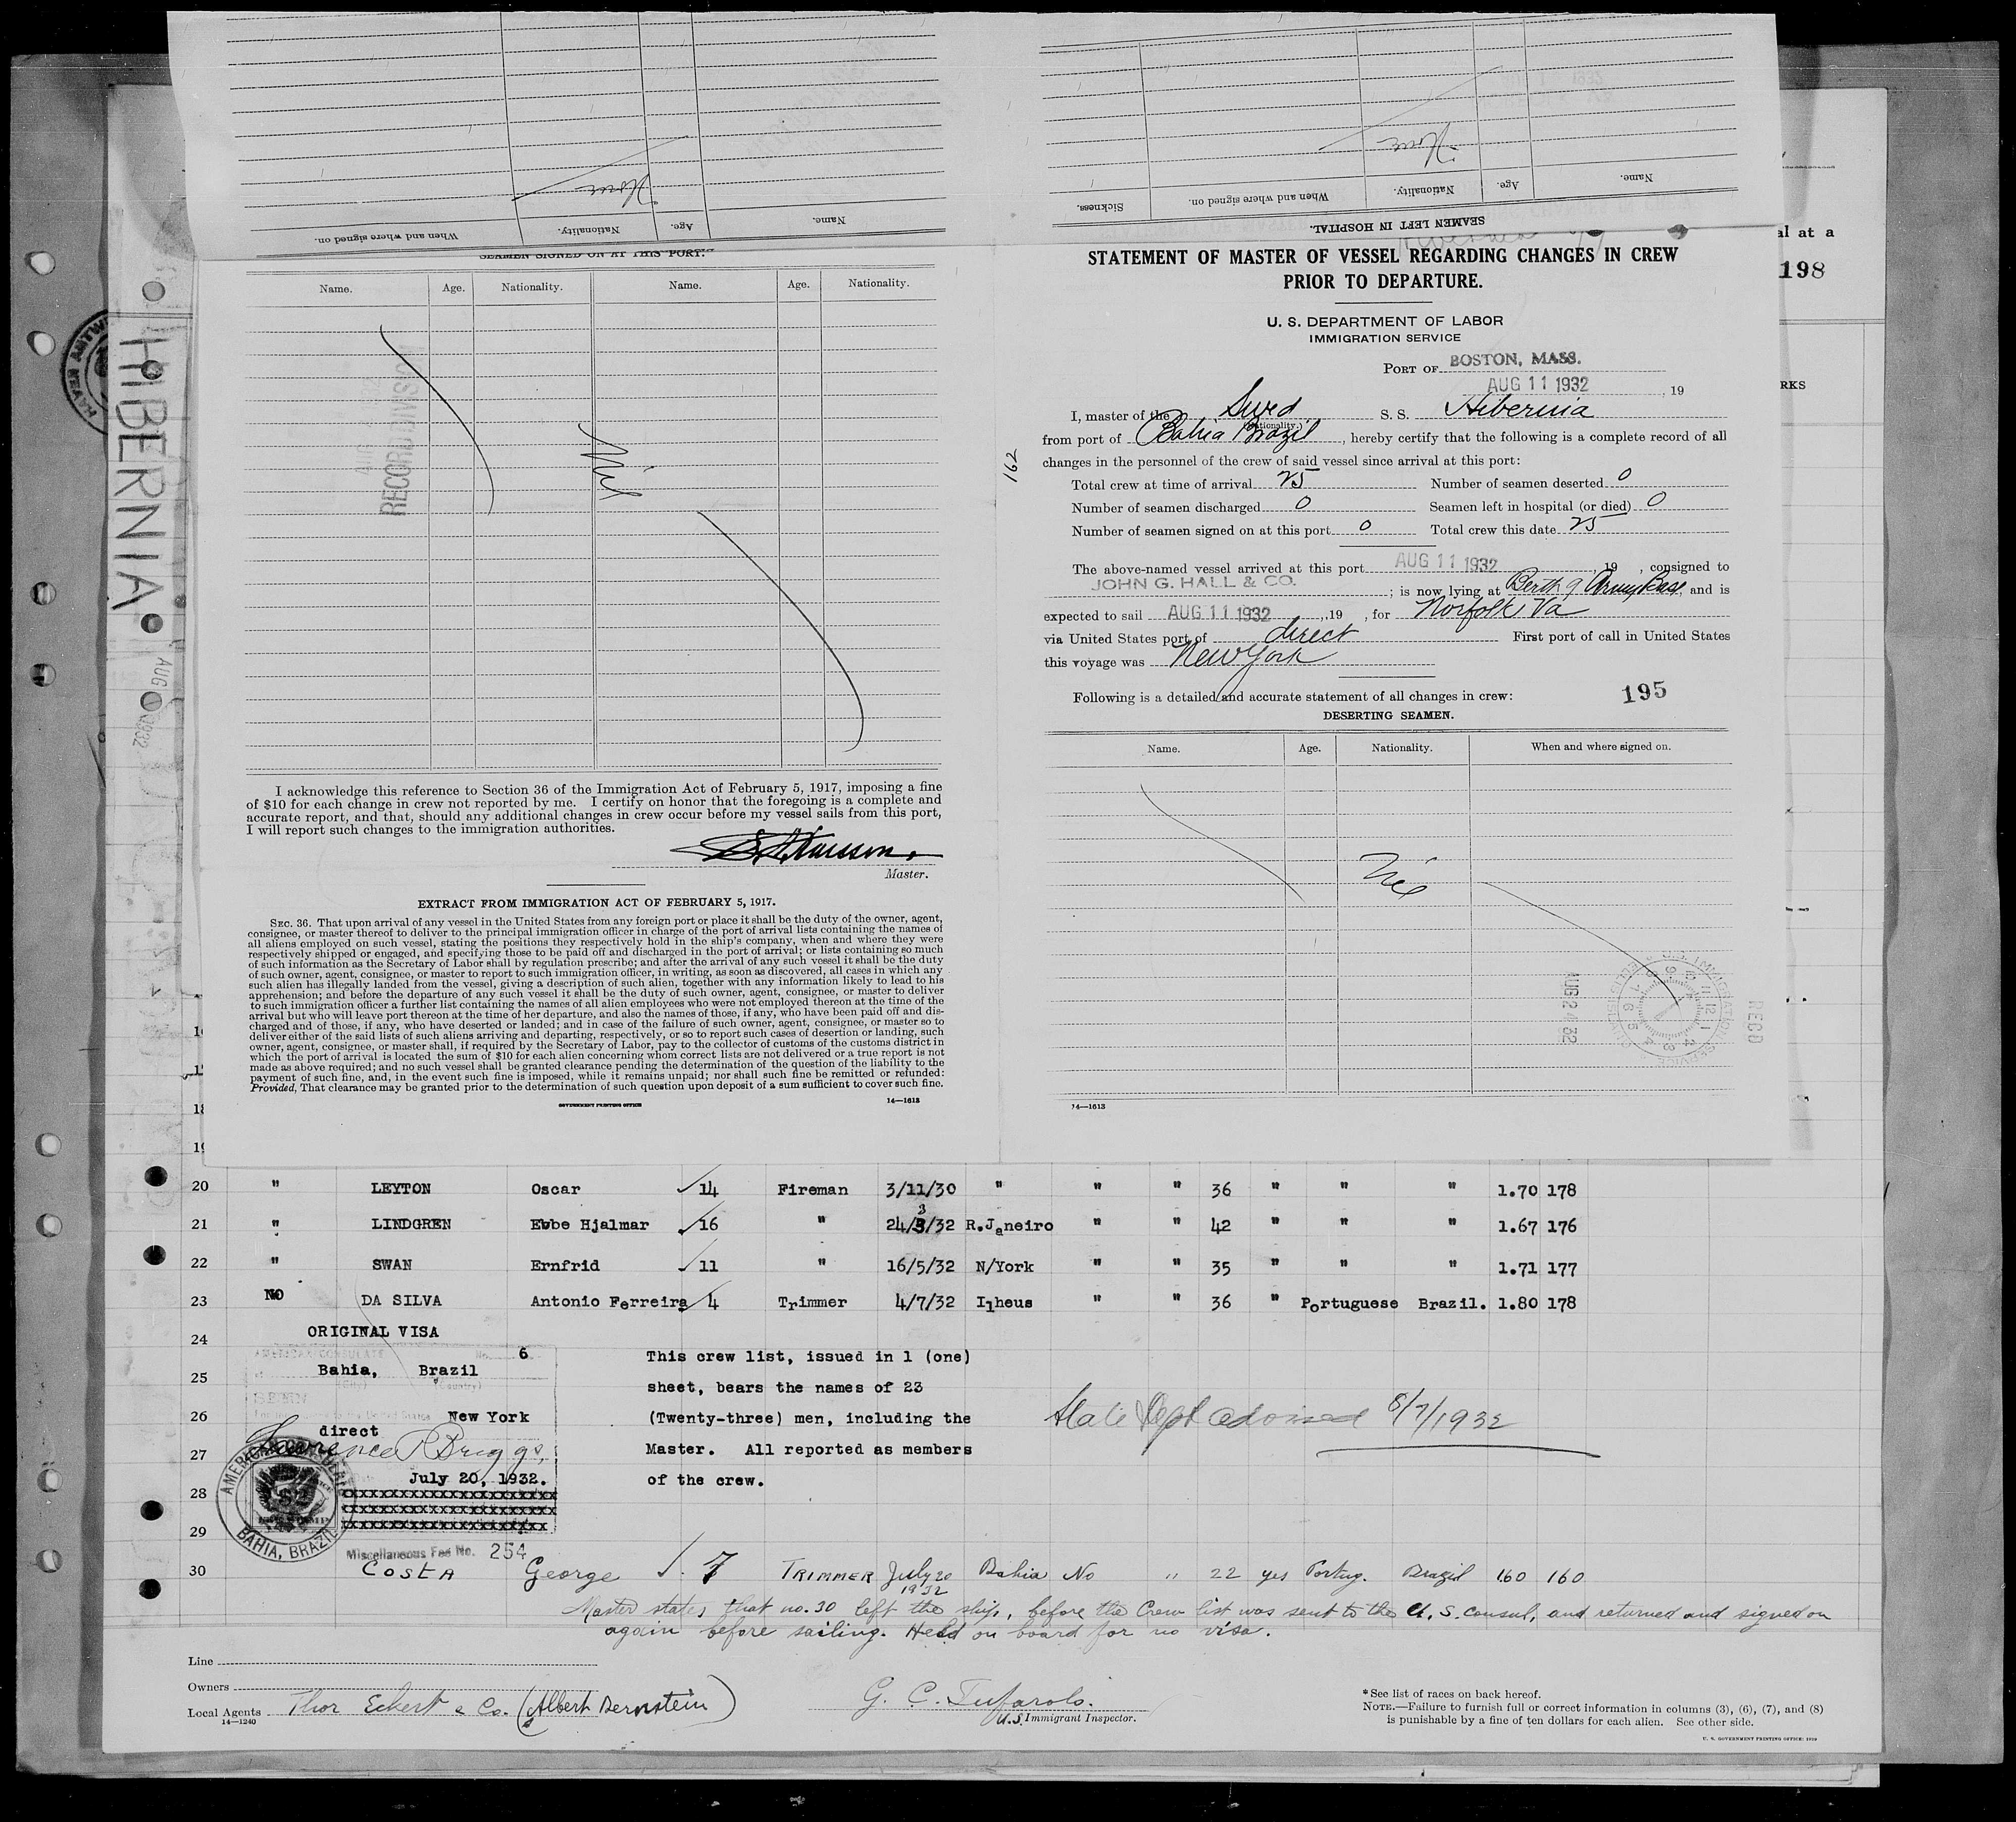 When and where signed on.
Nationality.
Age.
Name.
None
SEAMEN LEFT IN HOSPITAL.
Sickness.
When and where signed on.
Nationality.
Age.
Name.
None
SEAMEN SIGNED ON AT THIS PORT.
Name. Age. Nationality. Name. Age. Nationality.
RECORD DIVISION
Nil
I acknowledge this reference to Section 36 of the Immigration Act of February 5, 1917, imposing a fine
of $10 for each change in crew not reported by me. I certify on honor that the foregoing is a complete and
accurate report, and that, should any additional changes in crew occur before my vessel sails from this port,
I will report such changes to the immigration authorities.
Master.
EXTRACT FROM IMMIGRATION ACT OF FEBRUARY 5, 1917.
SEC. 36. That upon arrival of any vessel in the United States from any foreign port or place it shall be the duty of the owner, agent,
consignee, or master thereof to deliver to the principal immigration officer in charge of the port of arrival lists containing the names of
all aliens employed on such vessel, stating the positions they respectively hold in the ship's company, when and where they were
respectively shipped or engaged, and specifying those to be paid off and discharged in the port of arrival; or lists containing so much
of such information as the Secretary of Labor shall by regulation prescribe; and after the arrival of any such vessel it shall be the duty
of such owner, agent, consignee, or master to report to such immigration officer, in writing, as soon as discovered, all cases in which any
such alien has illegally landed from the vessel, giving a description of such alien, together with any information likely to lead to his
apprehension; and before the departure of any such vessel it shall be the duty of such owner, agent, consignee, or master to deliver
to such immigration officer a further list containing the names of all alien employees who were not employed thereon at the time of the
arrival but who will leave port thereon at the time of her departure, and also the names of those, if any, who have been paid off and dis-
charged and of those, if any, who have deserted or landed; and in case of the failure of such owner, agent, consignee, or master so to
deliver either of the said lists of such aliens arriving and departing, respectively, or so to report such cases of desertion or landing, such
owner, agent, consignee, or master shall, if required by the Secretary of Labor, pay to the collector of customs of the customs district in
which the port of arrival is located the sum of $10 for each alien concerning whom correct lists are not delivered or a true report is not
made as above required; and no such vessel shall be granted clearance pending the determination of the question of the liability to the
payment of such fine, and, in the event such fine is imposed, while it remains unpaid; nor shall such fine be remitted or refunded:
Provided, That clearance may be granted prior to the determination of such question upon deposit of a sum sufficient to cover such fine.
GOVERNMENT PRINTING OFFICE 14—1613
STATEMENT OF MASTER OF VESSEL REGARDING CHANGES IN CREW
PRIOR TO DEPARTURE.
U. S. DEPARTMENT OF LABOR
IMMIGRATION SERVICE
PORT OF BOSTON, MASS.
AUG 11 1932, 19
I, master of the Swed S. S. Hibernia
(Nationality.)
from port of Bahia Brazil, hereby certify that the following is a complete record of all
changes in the personnel of the crew of said vessel since arrival at this port:
Total crew at time of arrival 25 Number of seamen deserted 0
Number of seamen discharged 0 Seamen left in hospital (or died) 0
Number of seamen signed on at this port 0 Total crew this date 25
The above-named vessel arrived at this port AUG 11 1932, 19 , consigned to
JOHN G. HALL & CO. ; is now lying at Berth 9 Army Base, and is
expected to sail AUG 11 1932, 19 , for Norfolk, Va
via United States port of direct First port of call in United States
this voyage was New York
Following is a detailed and accurate statement of all changes in crew:
195
DESERTING SEAMEN.
Name. Age. Nationality. When and where signed on.
Nil
AUG 24 32
U.S. IMMIGRATION SERVICE
RECD
14—1613
162
al at a
198
RKS
HIBERNIA
AUG 1932
18
19
20 " LEYTON Oscar 14 Fireman 3/11/30 " " " 36 " " " 1.70 178
21 " LINDGREN Ebbe Hjalmar 16 " 24/3/32 R.Janeiro " " 42 " " " 1.67 176
22 " SWAN Ernfrid 11 " 16/5/32 N/York " " 35 " " " 1.71 177
23 NO DA SILVA Antonio Ferreira 4 Trimmer 4/7/32 Ilheus " " 36 " Portuguese Brazil. 1.80 178
24 ORIGINAL VISA
AMERICAN CONSULATE No. 6
25 Bahia, Brazil
26 New York
direct
27
July 20, 1932.
28
29
AMERICAN CONSULATE
BAHIA, BRAZIL
Miscellaneous Fee No. 254
This crew list, issued in 1 (one)
sheet, bears the names of 23
(Twenty-three) men, including the
Master. All reported as members
of the crew.
State Dept advised 8/7/1932
30 COSTA George 7 TRIMMER July 20 1932 Bahia No " 22 yes Portug. Brazil 160 160
Master states that no. 30 left the ship, before the Crew list was sent to the U.S. consul, and returned and signed on
again before sailing. Held on board for no visa.
Line
Owners
Local Agents Thor Eckert & Co. (Albert Bernstein)
14—1240
G. C. Tufarolo.
U.S. Immigrant Inspector.
* See list of races on back hereof.
NOTE.—Failure to furnish full or correct information in columns (3), (6), (7), and (8)
is punishable by a fine of ten dollars for each alien. See other side.
U. S. GOVERNMENT PRINTING OFFICE: 1930